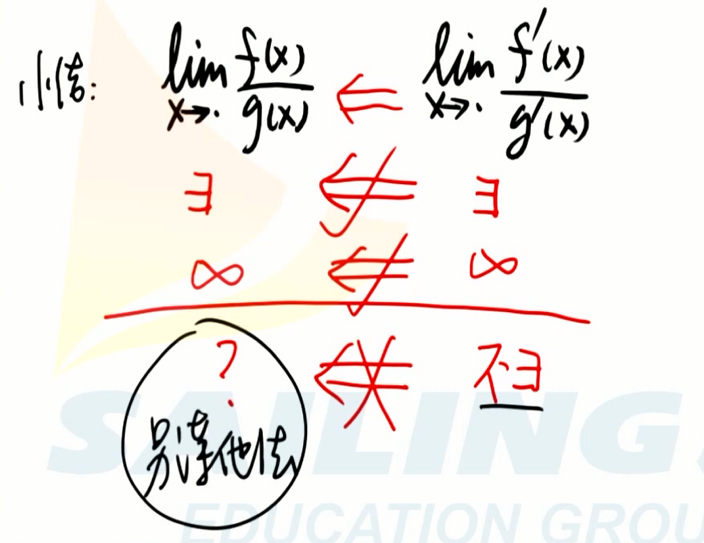 小结: lim x→· f(x)/g(x) ⇐ lim x→· f'(x)/g'(x)
∃ ⇐ ∃
∞ ⇐ ∞
? ⇐ 不∃
另谋他法
SAILING
EDUCATION GROU